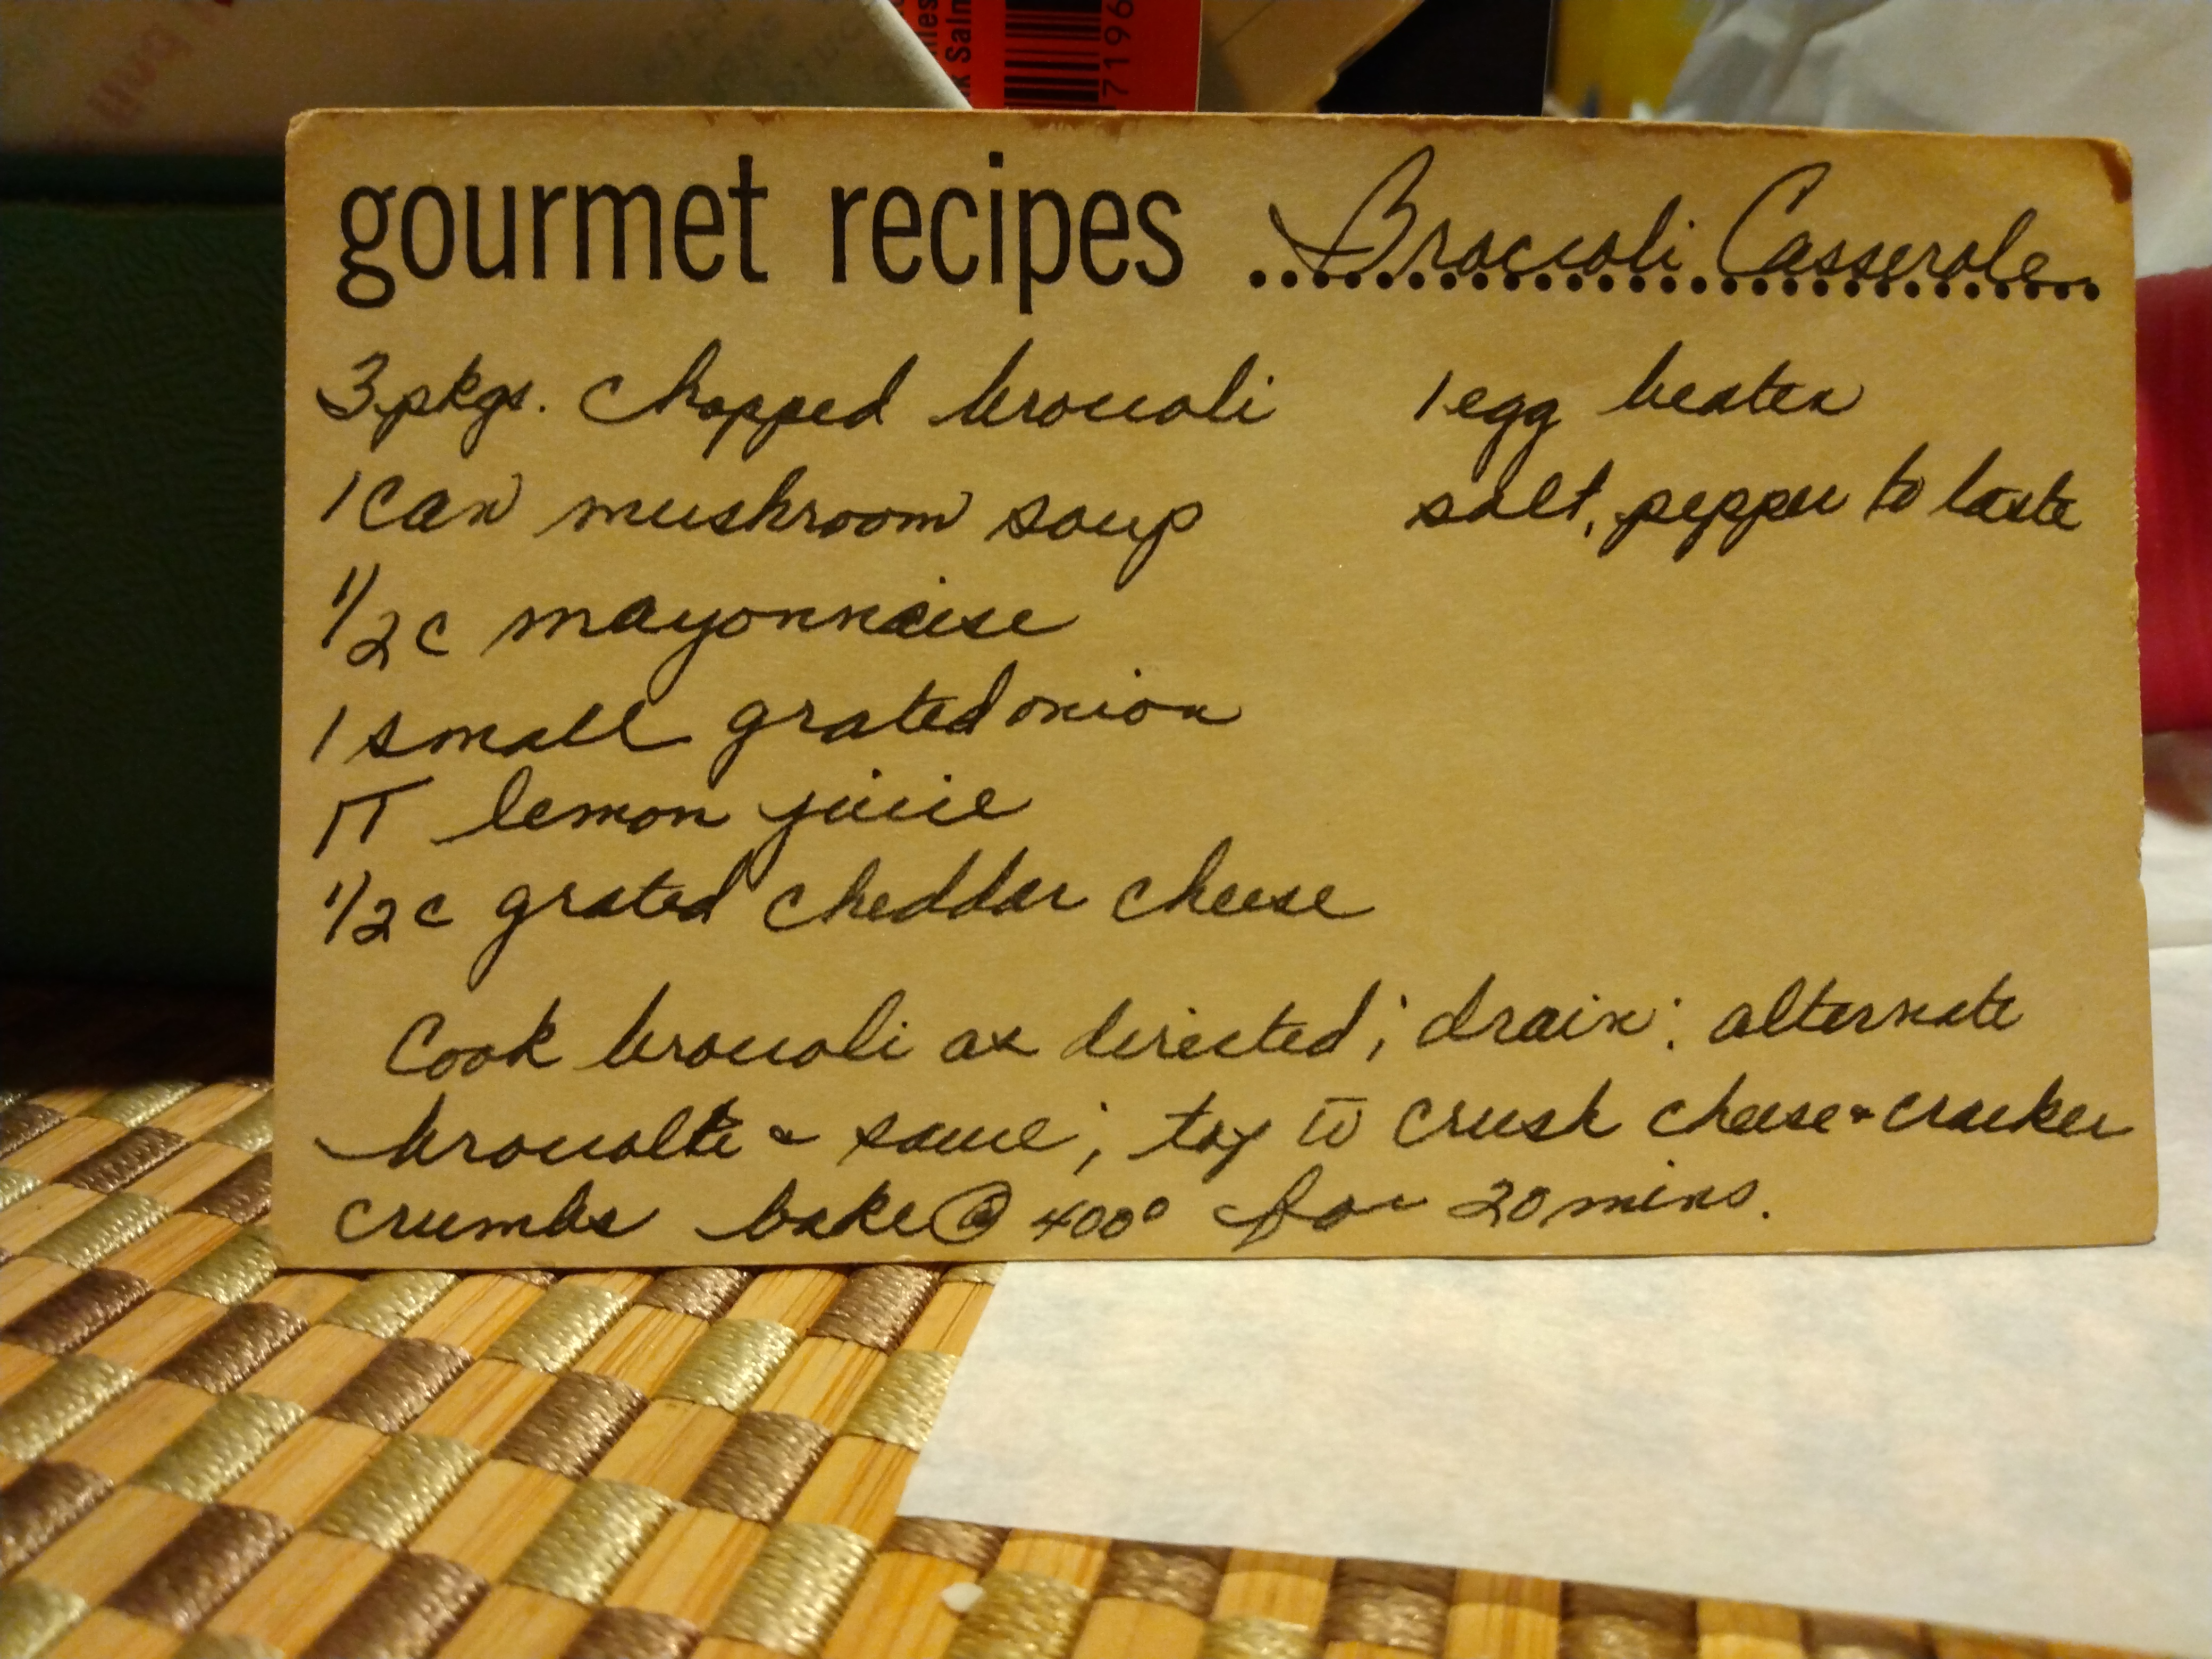 gourmet recipes Broccoli Casserole
3 pkgs. chopped broccoli
1 can mushroom soup
1/2 c mayonnaise
1 small grated onion
1T lemon juice
1/2 c grated cheddar cheese
1 egg beaten
salt, pepper to taste
Cook broccoli as directed; drain; alternate
broccoli & sauce; top w crush cheese & cracker
crumbs bake @ 400° for 20 mins.
k Salm
7196